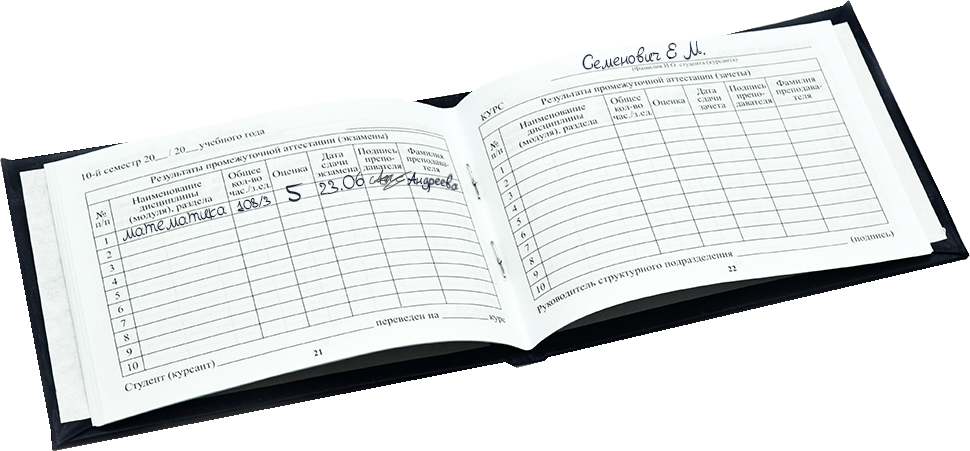 10-й семестр 20___/ 20___учебного года
Результаты промежуточной аттестации (экзамены)
№ п/п Наименование дисциплины (модуля), раздела Общее кол-во час./з.ед. Оценка Дата сдачи экзамена Подпись препо-давателя Фамилия преподава-теля
1 математика 108/3 5 23.06 Андреева
2
3
4
5
6
7
8
9
10
переведен на ________ курс
Студент (курсант)
21
Семенович Е М.
(Фамилия И.О. студента (курсанта)
КУРС Результаты промежуточной аттестации (зачеты)
№ п/п Наименование дисциплины (модуля), раздела Общее кол-во час./з.ед. Оценка Дата сдачи зачета Подпись препо-давателя Фамилия преподава-теля
1
2
3
4
5
6
7
8
9
10
Руководитель структурного подразделения ____________ (подпись)
22